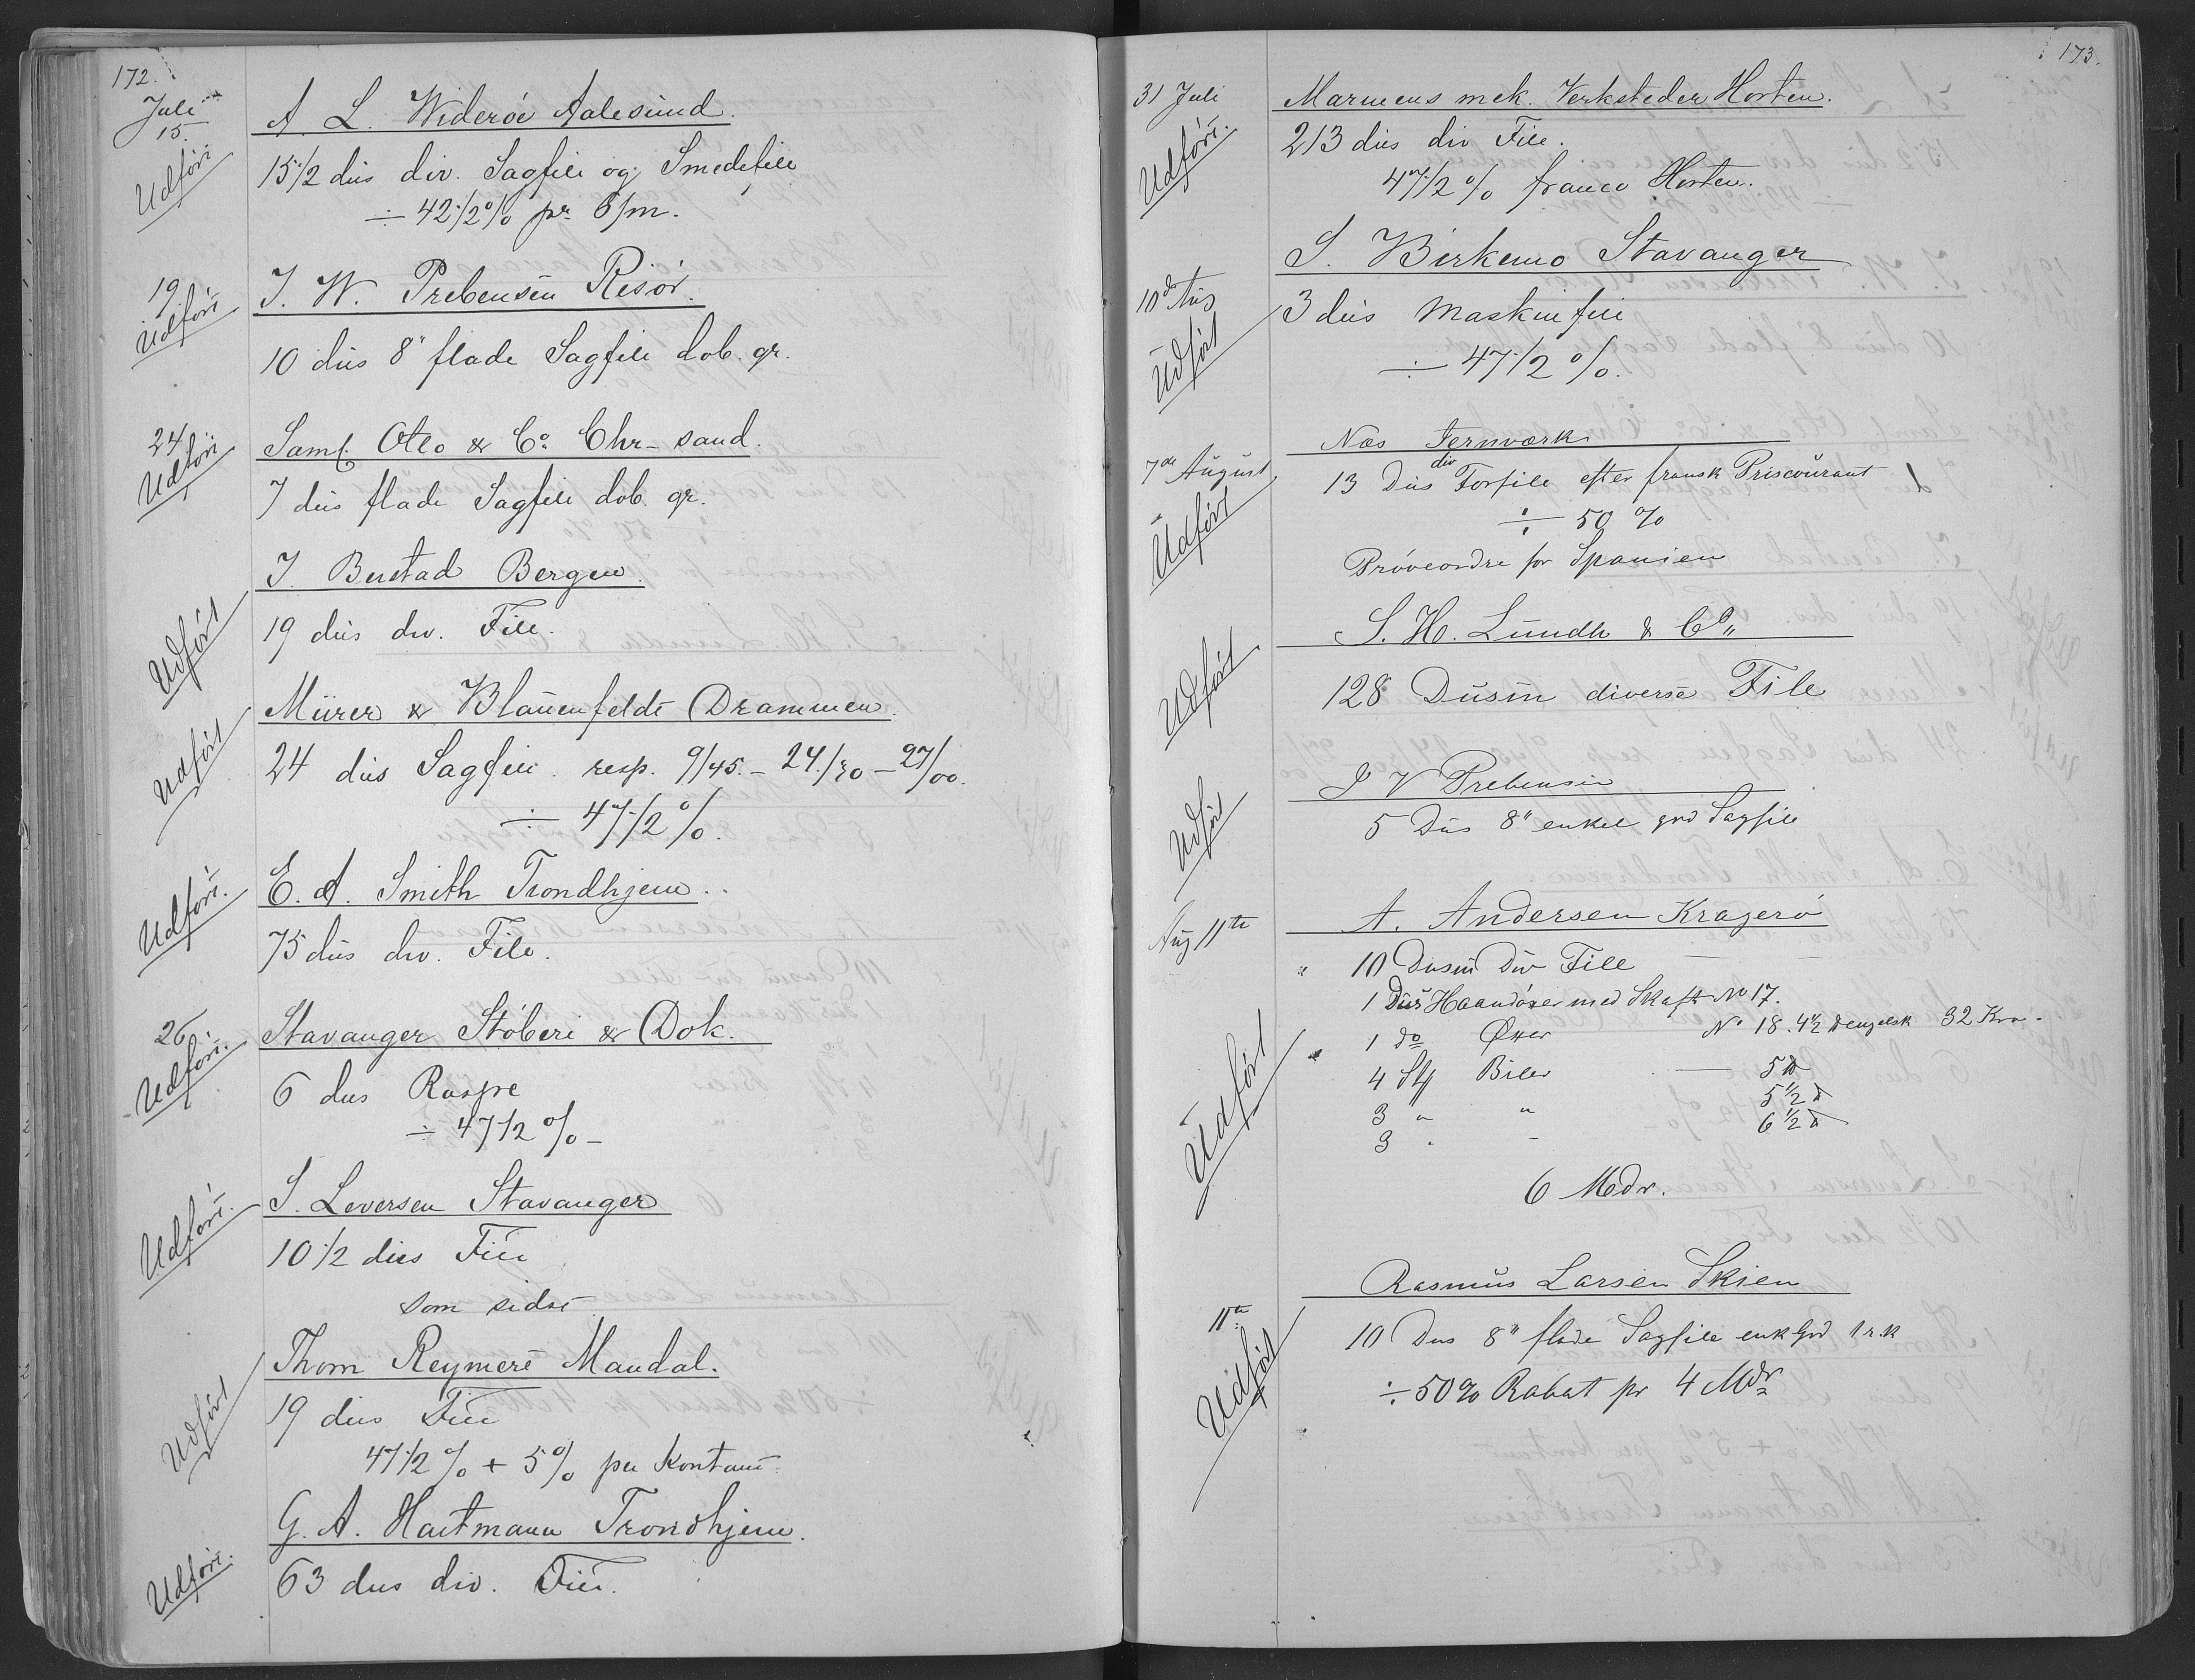 172.
Juli
15.
A. L. Widerøe Aalesund.
Udført
15 1/2 dus div. Sagfile og Smedefile
÷ 42 1/2 % pr 6/m.
19.
J. W. Prebensen Risør.
Udført
10 dus 8" flade Sagfile dob. gr.
24
Saml. Otto & Co Chr-sand.
Udført
7 dus flade Sagfile dob. gr.
J. Bustad Bergen.
Udført
19 dus div. File.
Mürer & Blauenfeldt Drammen.
Udført
24 dus Sagfile resp. 9/45. - 24./30 - 27/00.
÷ 47 1/2 %.
E. A. Smith Trondhjem.
Udført.
75 dus div. File.
26
Stavanger Støberi & Dok.
Udført.
6 dus Raspe
÷ 47 1/2 % -
S. Leversen Stavanger
Udført.
10 1/2 dus File
som sidst
Thom Reymert Mandal.
Udført
19 dus File
47 1/2 % + 5 % per Kontant.
G. A. Hartmann Trondhjem.
Udført.
63 dus div. File.
173.
31 Juli
Marinens mek. Verksteder Horten.
Udført.
213 dus div File.
47 1/2 % franco Horten.
S. Birkemo Stavanger
10de Aug
3 dus Maskinfile
Udført
÷ 47 1/2 %.
Næs Jernværk
7de August
13 Dus div Torfile efter fransk Priscourant
Udført
÷ 50 %
Prøveordre for Spanien
S. H. Lundh & Co
Udført
128 Dusin diverse File
J V Prebensen
Udført
5 Dus 8" enkel grd Sagfile
Aug 11te
A. Andersen Kragerø
" 10 Dusin Div File
1 Dus Haandøxer med Skaft No 17.
1 do Øxer No 18. 4 1/2 engelsk 32 Kro.
Udført
4 Stk Biler — 5
3 " " 5 1/2
3 " - 6 1/2
6 Mdr.
Rasmus Larsen Skien
11te
10 Dus 8" flade Sagfile enk Grd
Udført
÷ 50 % Rabat pr 4 Mdr